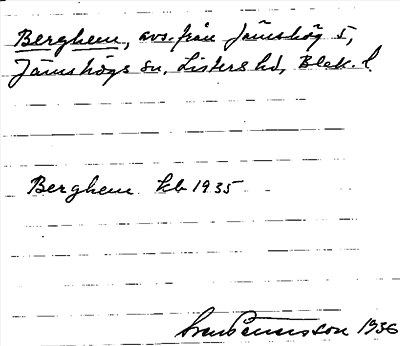 Berghem, avs. från Jämshög 5,
Jämshögs sn, Listers hd, Blek. l.
Berghem kb 1935
Sven Benson 1936